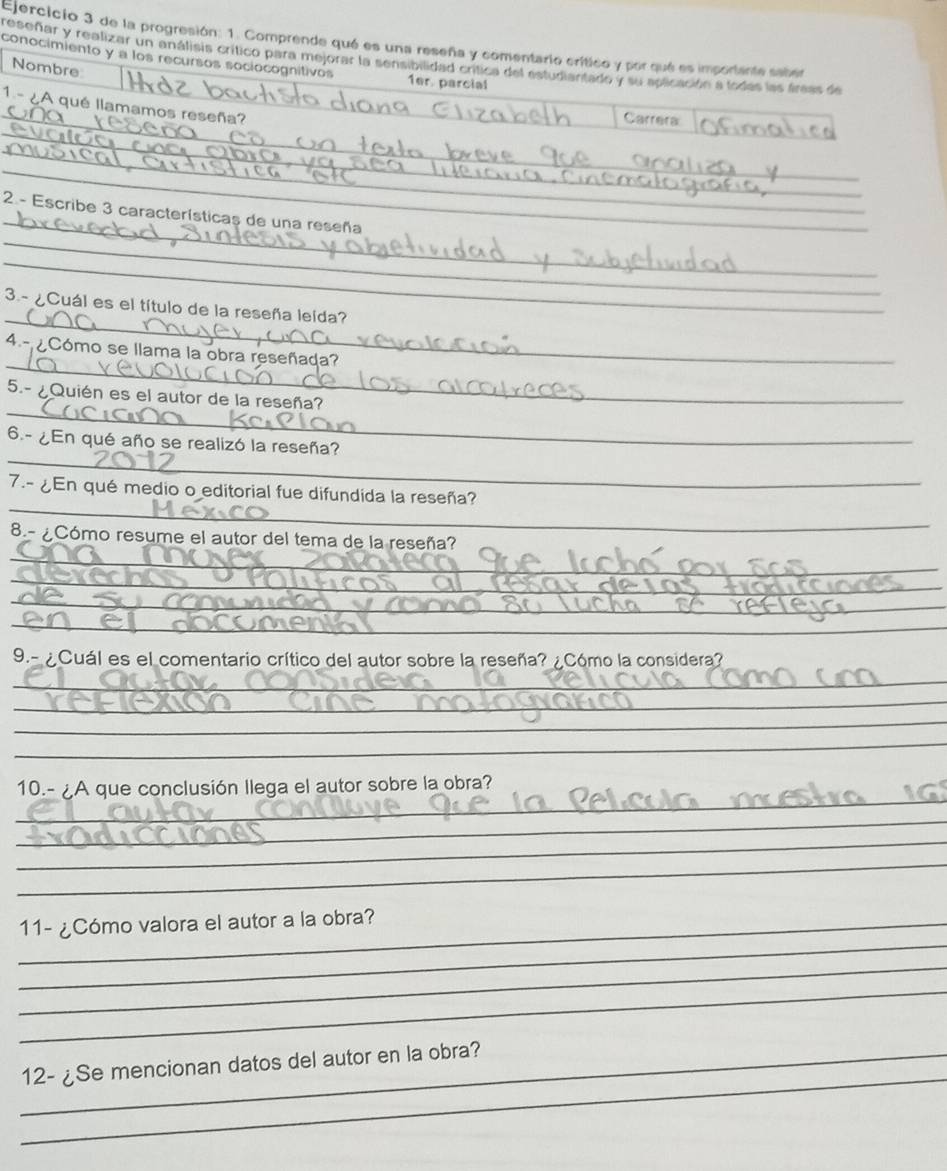 Ejercicio 3 de la progresión: 1. Comprende qué es una reseña y comentario crítico y por qué es importante saber
reseñar y realizar un análisis crítico para mejorar la sensibilidad crítica del estudiantado y su aplicación a todas las áreas de
conocimiento y a los recursos sociocognitivos
1er. parcial
Nombre: Hrdz bautista diana Elizabeth Carrera: Ofimatica
1.- ¿A qué llamamos reseña?
una reseña es un texto breve que analiza y
evalúa una obra, ya sea literaria, cinematografia,
musical, artistica etc
2.- Escribe 3 características de una reseña
brevedad, Sintesis y objetividad y subjetividad
3.- ¿Cuál es el título de la reseña leída?
Una mujer, una revolución
4.- ¿Cómo se llama la obra reseñada?
la revolución de los alcatreces
5.- ¿Quién es el autor de la reseña?
Luciana Kaplan
6.- ¿En qué año se realizó la reseña?
2012
7.- ¿En qué medio o editorial fue difundida la reseña?
México
8.- ¿Cómo resume el autor del tema de la reseña?
Una mujer zapateca que luchó por sus
derechos Politicos al pesar de las tradicciones
de su comunidad y como su lucha se refleja
en el documental
9.- ¿Cuál es el comentario crítico del autor sobre la reseña? ¿Cómo la considera?
El autor considera la pelicula como una
reflexión cine matografica
10.- ¿A que conclusión llega el autor sobre la obra?
El autor concluye que la Pelicula muestra las
tradicciones
11- ¿Cómo valora el autor a la obra?
12- ¿Se mencionan datos del autor en la obra?